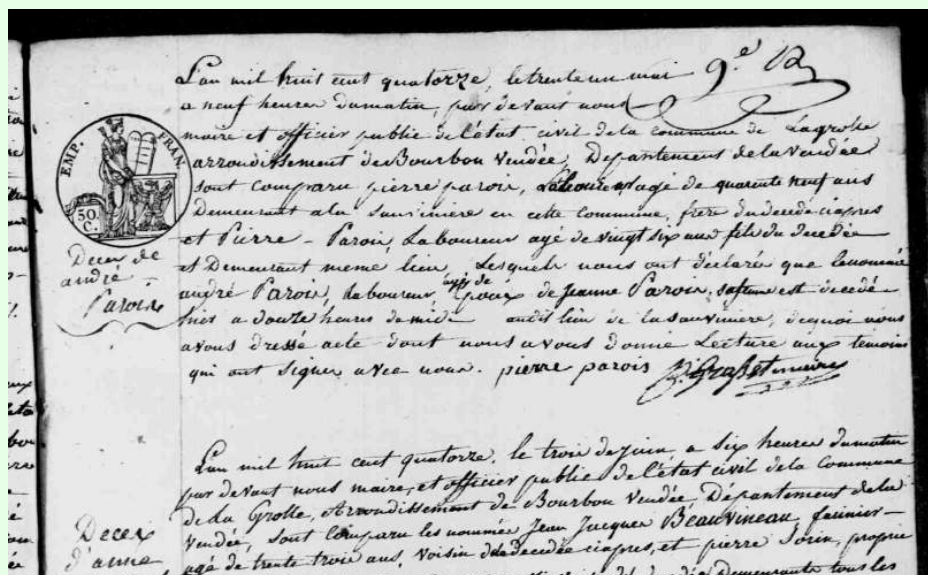 L'an mil huit cent quatorze, le trente un mai 9.e
a neuf heures dumatin, par devant nous
maire et officier public de l'état civil de la commune de Lagrolle
arrondissement de Bourbon Vendée, Département dela Vendée
sont comparu pierre parois, agé de quarente neuf ans
Demeurant ala Sauviniere en cette commune, frere du decedé ciapres
et Pierre - Parois, Laboureur agé de vingt six ans fils du decedée
et Demeurant meme lieu, Lesquels nous ont déclarés que lenommé
andré Parois, Laboureur Epoux de Jeanne Parois, safame est decedé
hier a douze heures de midi audit lieu de la sauviniere, dequoi nous
avons dressé acte dont nous avons donné Lecture aux témoins
qui ont signer avec nous. pierre parois
EMP. FRAN
50.
C.
Deces de
andré
Parois
L'an mil huit cent quatorze. le trois de juin a six heures dumatin
par devant nous maire, et officier public de l'état civil dela Commune
de La Grolle, Arrondissement de Bourbon Vendée, Département dela
Vendée, sont comparu les nommée Jean Jacques Beauvineau, farinier-
agé de trente trois ans, voisin dudecedée ciapres, et pierre Sorin, propri
demeurants tous les
Deces
d'anne